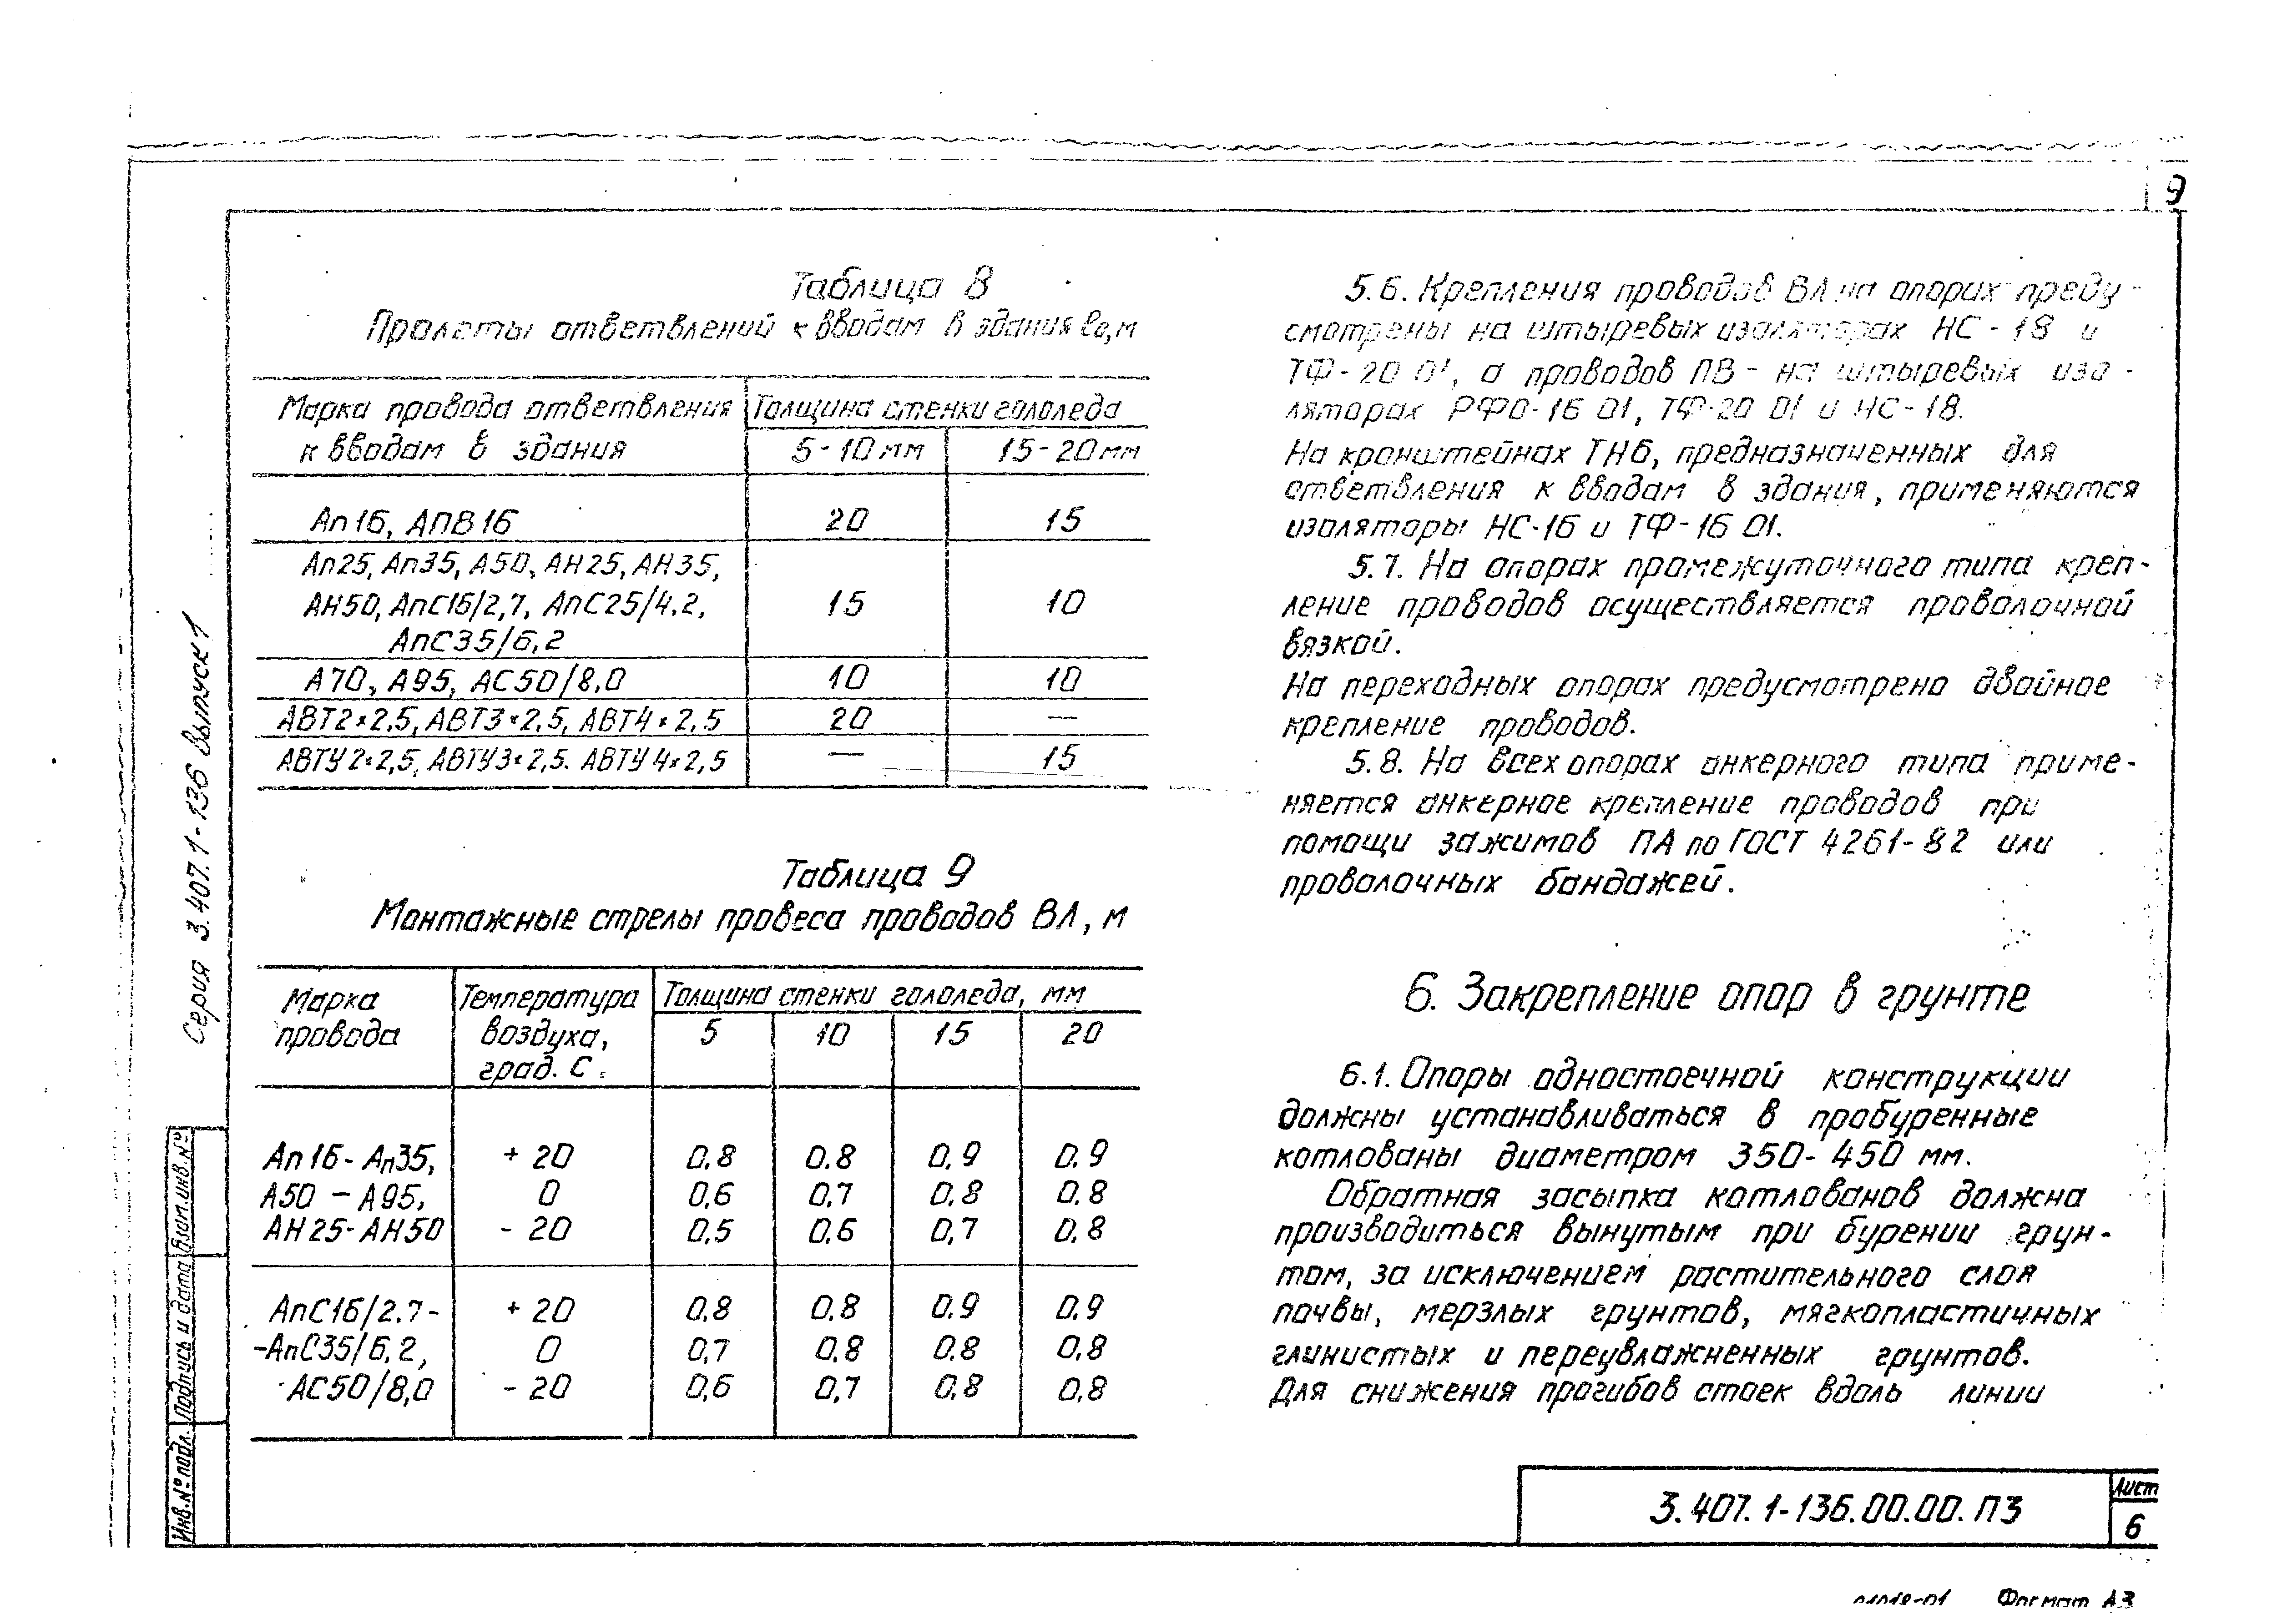 9
Таблица 8
Пролеты ответвлений к вводам в здания ℓо, м
Марка провода ответвления к вводам в здания
Толщина стенки гололеда
5-10 мм 15-20 мм
Ап16, АПВ16 20 15
Ап25, Ап35, А50, АН25, АН35,
АН50, АпС16/2,7, АпС25/4.2, 15 10
АпС35/6,2
А70, А95, АС50/8,0 10 10
АВТ2×2,5, АВТ3×2,5, АВТ4×2,5 20 —
АВТУ2×2,5, АВТУ3×2,5. АВТУ4×2,5 — 15
Таблица 9
Монтажные стрелы провеса проводов ВЛ, м
Марка провода
Температура воздуха, град. С.
Толщина стенки гололеда, мм
5 10 15 20
Ап16-Ап35, +20 0.8 0.8 0,9 0.9
А50 – А95, 0 0,6 0,7 0,8 0.8
АН25-АН50 -20 0,5 0.6 0,7 0,8
АпС16/2.7- +20 0,8 0,8 0.9 0,9
-АпС35/6,2, 0 0,7 0,8 0.8 0,8
АС50/8,0 -20 0,6 0,7 0,8 0,8
5.6. Крепления проводов ВЛ на опорах преду-
смотрены на штыревых изоляторах НС-18 и
ТФ-20 01, а проводов ПВ - на штыревых изо-
ляторах РФО-16 01, ТФ-20 01 и НС-18.
На кронштейнах ТН6, предназначенных для
ответвления к вводам в здания, применяются
изоляторы НС-16 и ТФ-16 01.
5.7. На опорах промежуточного типа креп-
ление проводов осуществляется проволочной
вязкой.
На переходных опорах предусмотрено двойное
крепление проводов.
5.8. На всех опорах анкерного типа приме-
няется анкерное крепление проводов при
помощи зажимов ПА по ГОСТ 4261-82 или
проволочных бандажей.
6. Закрепление опор в грунте
6.1. Опоры одностоечной конструкции
должны устанавливаться в пробуренные
котлованы диаметром 350-450 мм.
Обратная засыпка котлованов должна
производиться вынутым при бурении грун-
том, за исключением растительного слоя
почвы, мерзлых грунтов, мягкопластичных
глинистых и переувлажненных грунтов.
Для снижения прогибов стоек вдоль линии
Серия 3.407.1-136 выпуск 1
Инв.№ подл. Подпись и дата Взам.инв.№
3.407.1-136.00.00.ПЗ
Лист
6
Формат А3